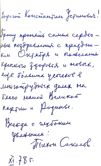 Дорогой Константин Устинович!
Прошу принять самые сердеч-
ные поздравления с праздни-
ком Октября и пожелания
крепкого здоровья и новых,
еще больших успехов в
многотрудных делах на
благо нашей Великой
партии и Родины.
Всегда с глубоким
уважением
XI 78 г.